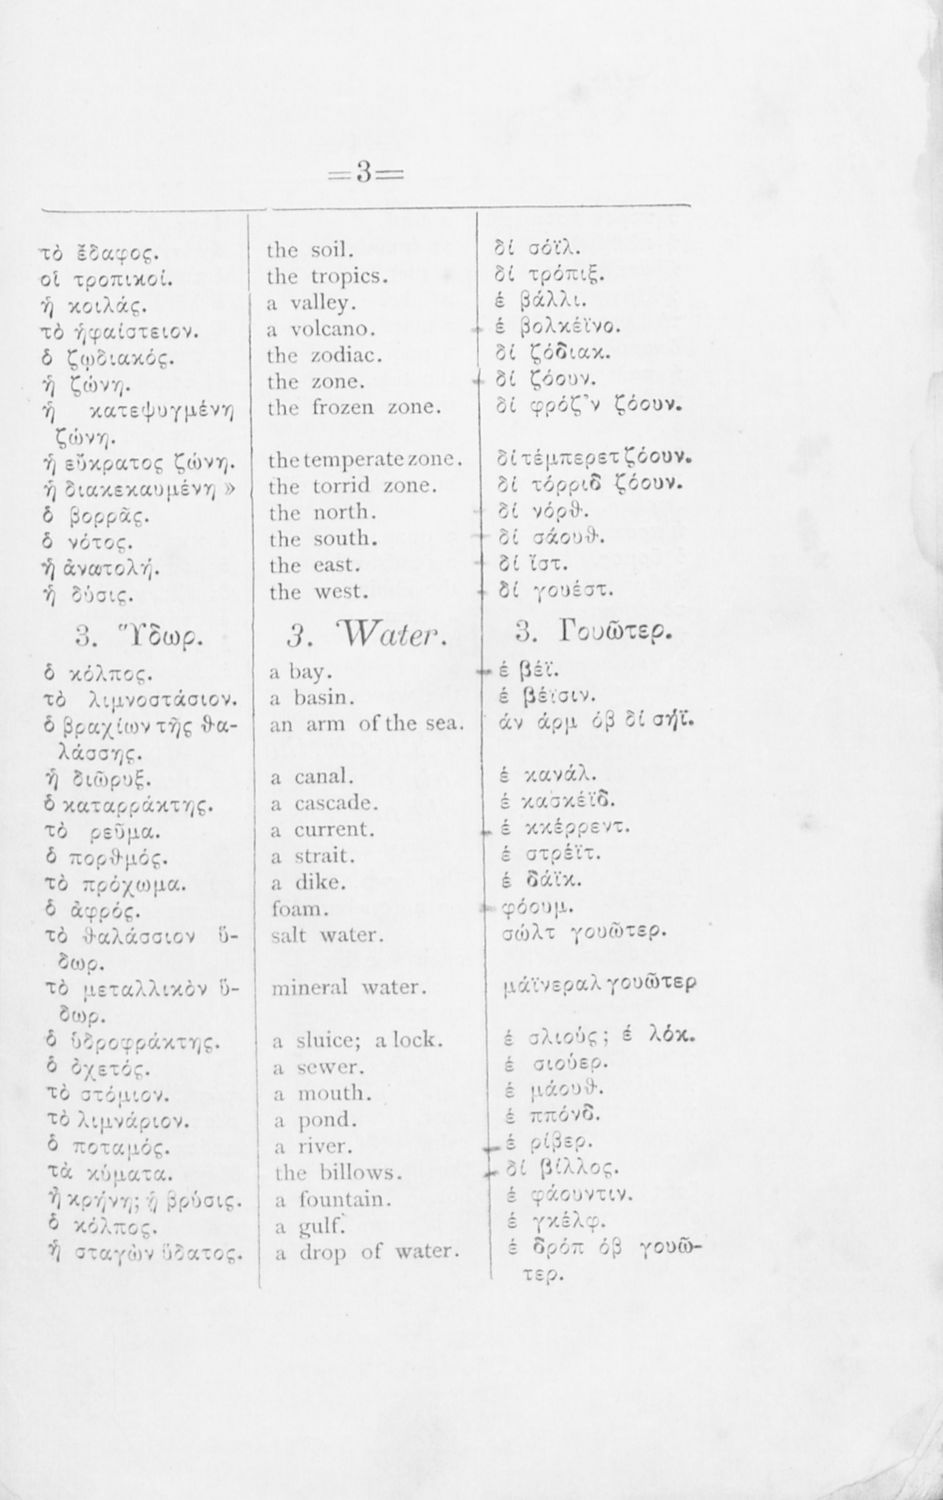 =3=
τὸ ἔδαφος. the soil. δί σόϊλ.
οἱ τροπικοί. the tropics. δί τρόπιξ.
ἡ κοιλάς. a valley. ἐ βάλλι.
τὸ ἡφαίστειον. a volcano. ἐ βολκέϊνο.
ὁ ζῳδιακός. the zodiac. δί ζόδιακ.
ἡ ζώνη. the zone. δί ζόουν.
ἡ κατεψυγμένη the frozen zone. δί φρόζ'ν ζόουν.
ζώνη.
ἡ εὔκρατος ζώνη. the temperate zone. δί τέμπερετ ζόουν.
ἡ διακεκαυμένη » the torrid zone. δί τόρριδ ζόουν.
ὁ βορρᾶς. the north. δί νόρθ.
ὁ νότος. the south. δί σάουθ.
ἡ ἀνατολή. the east. δί ἴστ.
ἡ δύσις. the west. δί γουέστ.
3. Ὕδωρ. 3. Water. 3. Γουῶτερ.
ὁ κόλπος. a bay. ἐ βέϊ.
τὸ λιμνοστάσιον. a basin. ἐ βέϊσιν.
ὁ βραχίων τῆς θα- an arm of the sea. ἀν ἀρμ ὀβ δί σήϊ.
λάσσης.
ἡ διῶρυξ. a canal. ἐ κανάλ.
ὁ καταρράκτης. a cascade. ἐ κασκέϊδ.
τὸ ρεῦμα. a current. ἐ κκέρρεντ.
ὁ πορθμός. a strait. ἐ στρέϊτ.
τὸ πρόχωμα. a dike. ἐ δάϊκ.
ὁ ἀφρός. foam. φόουμ.
τὸ θαλάσσιον ὕ- salt water. σώλτ γουῶτερ.
δωρ.
τὸ μεταλλικὸν ὕ- mineral water. μάϊνεραλ γουῶτερ
δωρ.
ὁ ὑδροφράκτης. a sluice; a lock. ἐ σλιούς; ἐ λόκ.
ὁ ὀχετός. a sewer. ἐ σιούερ.
τὸ στόμιον. a mouth. ἐ μάουθ.
τὸ λιμνάριον. a pond. ἐ ππόνδ.
ὁ ποταμός. a river. ἐ ρίβερ.
τὰ κύματα. the billows. δί βίλλος.
ἡ κρήνη; ἡ βρύσις. a fountain. ἐ φάουντιν.
ὁ κόλπος. a gulf. ἐ γκέλφ.
ἡ σταγὼν ὕδατος. a drop of water. ἐ δρόπ ὀβ γουῶ-
τερ.